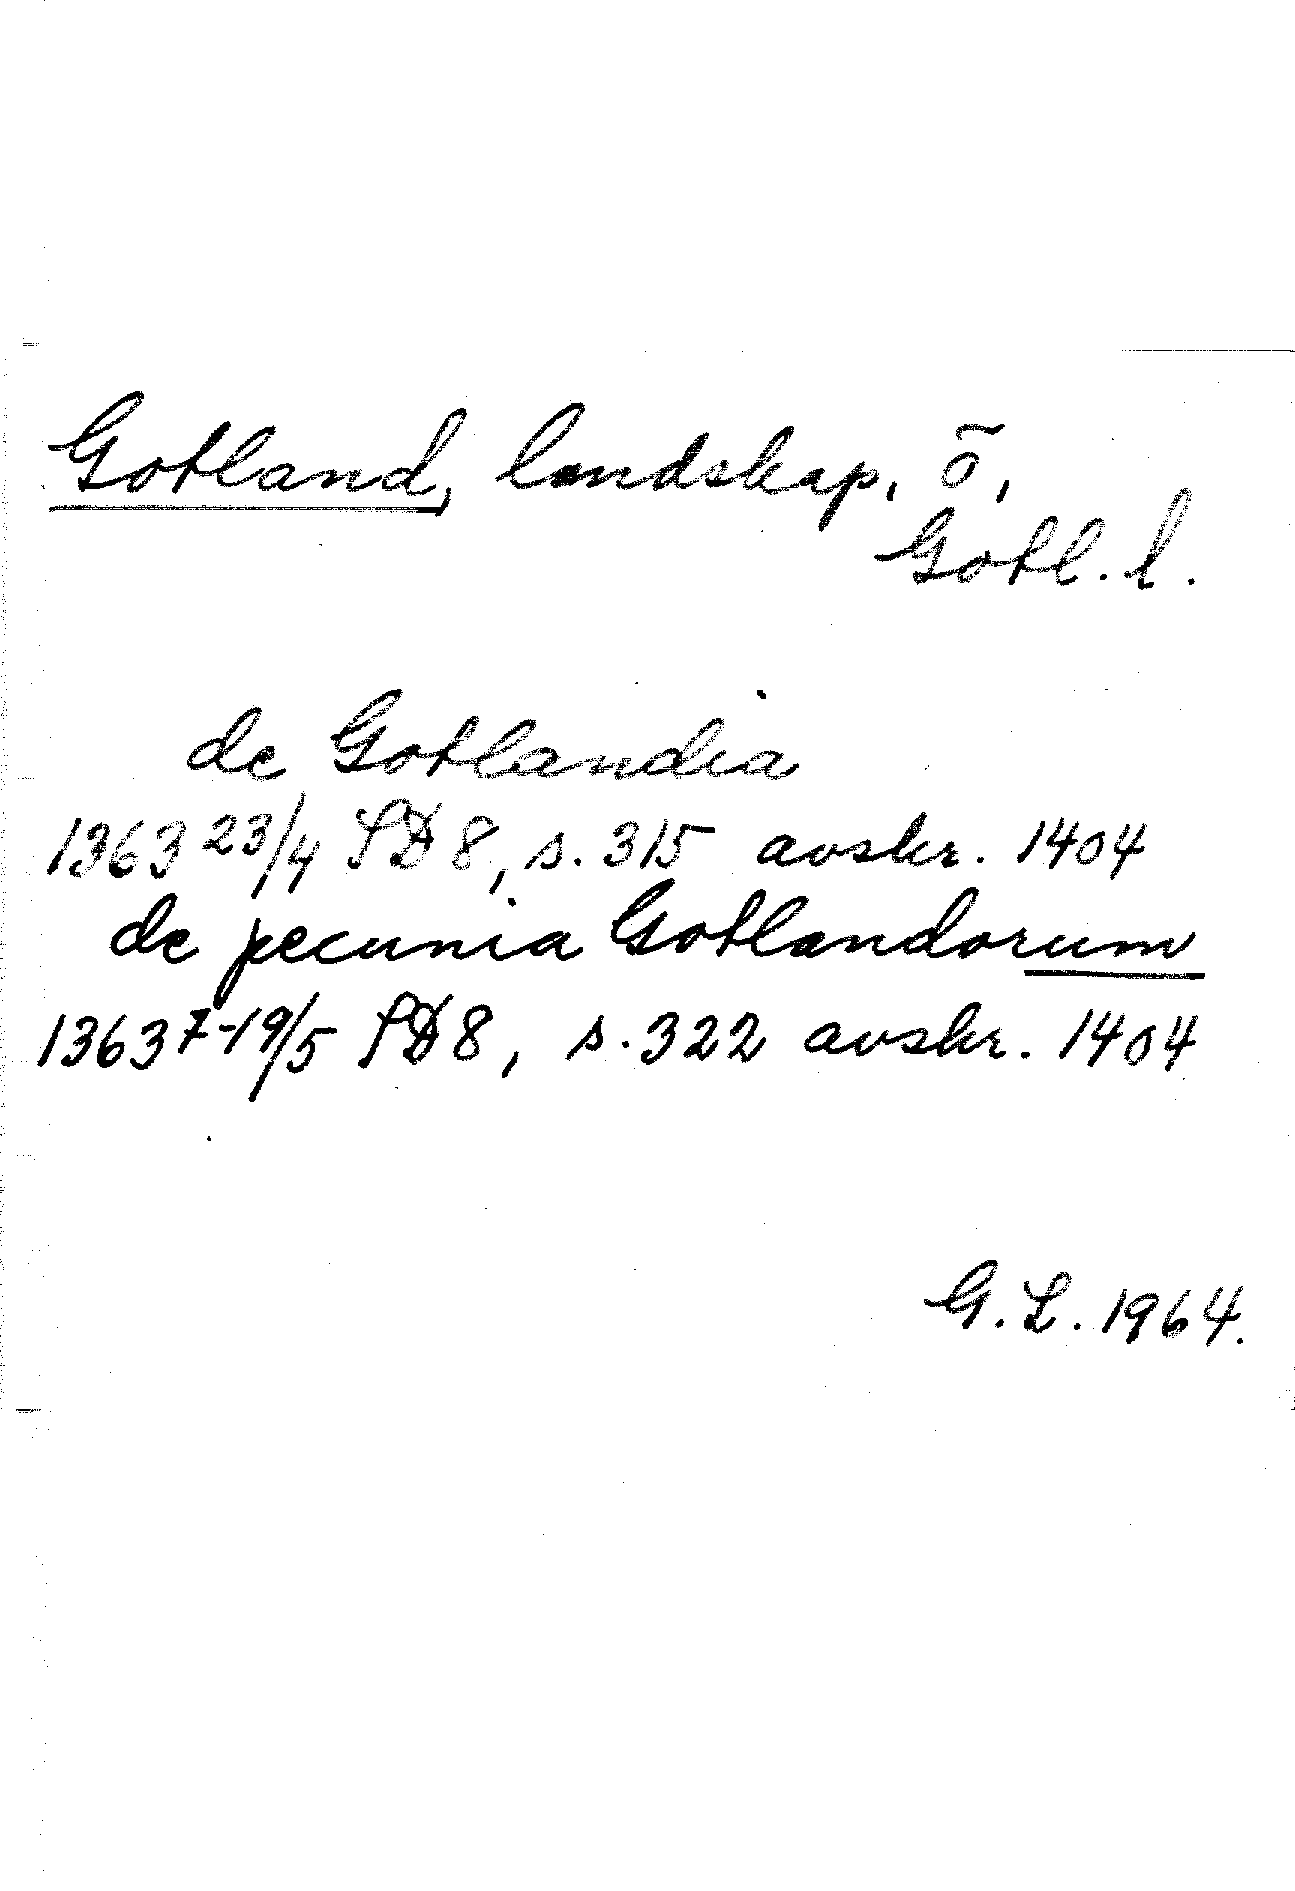 Gotland, landskap, ö,
Gotl. l.
de Gotlandia
1363 23/4 SD 8, s. 315 avskr. 1404
de pecunia Gotlandorum
1363 7-19/5 SD 8, s. 322 avskr. 1404
G. L. 1964.